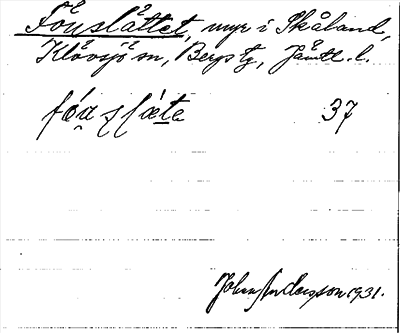 Fönslåttet, myr i Skåland,
Klövsjö sn, Bergs tg, Jämtl. l.
37
John Andersson 1931.